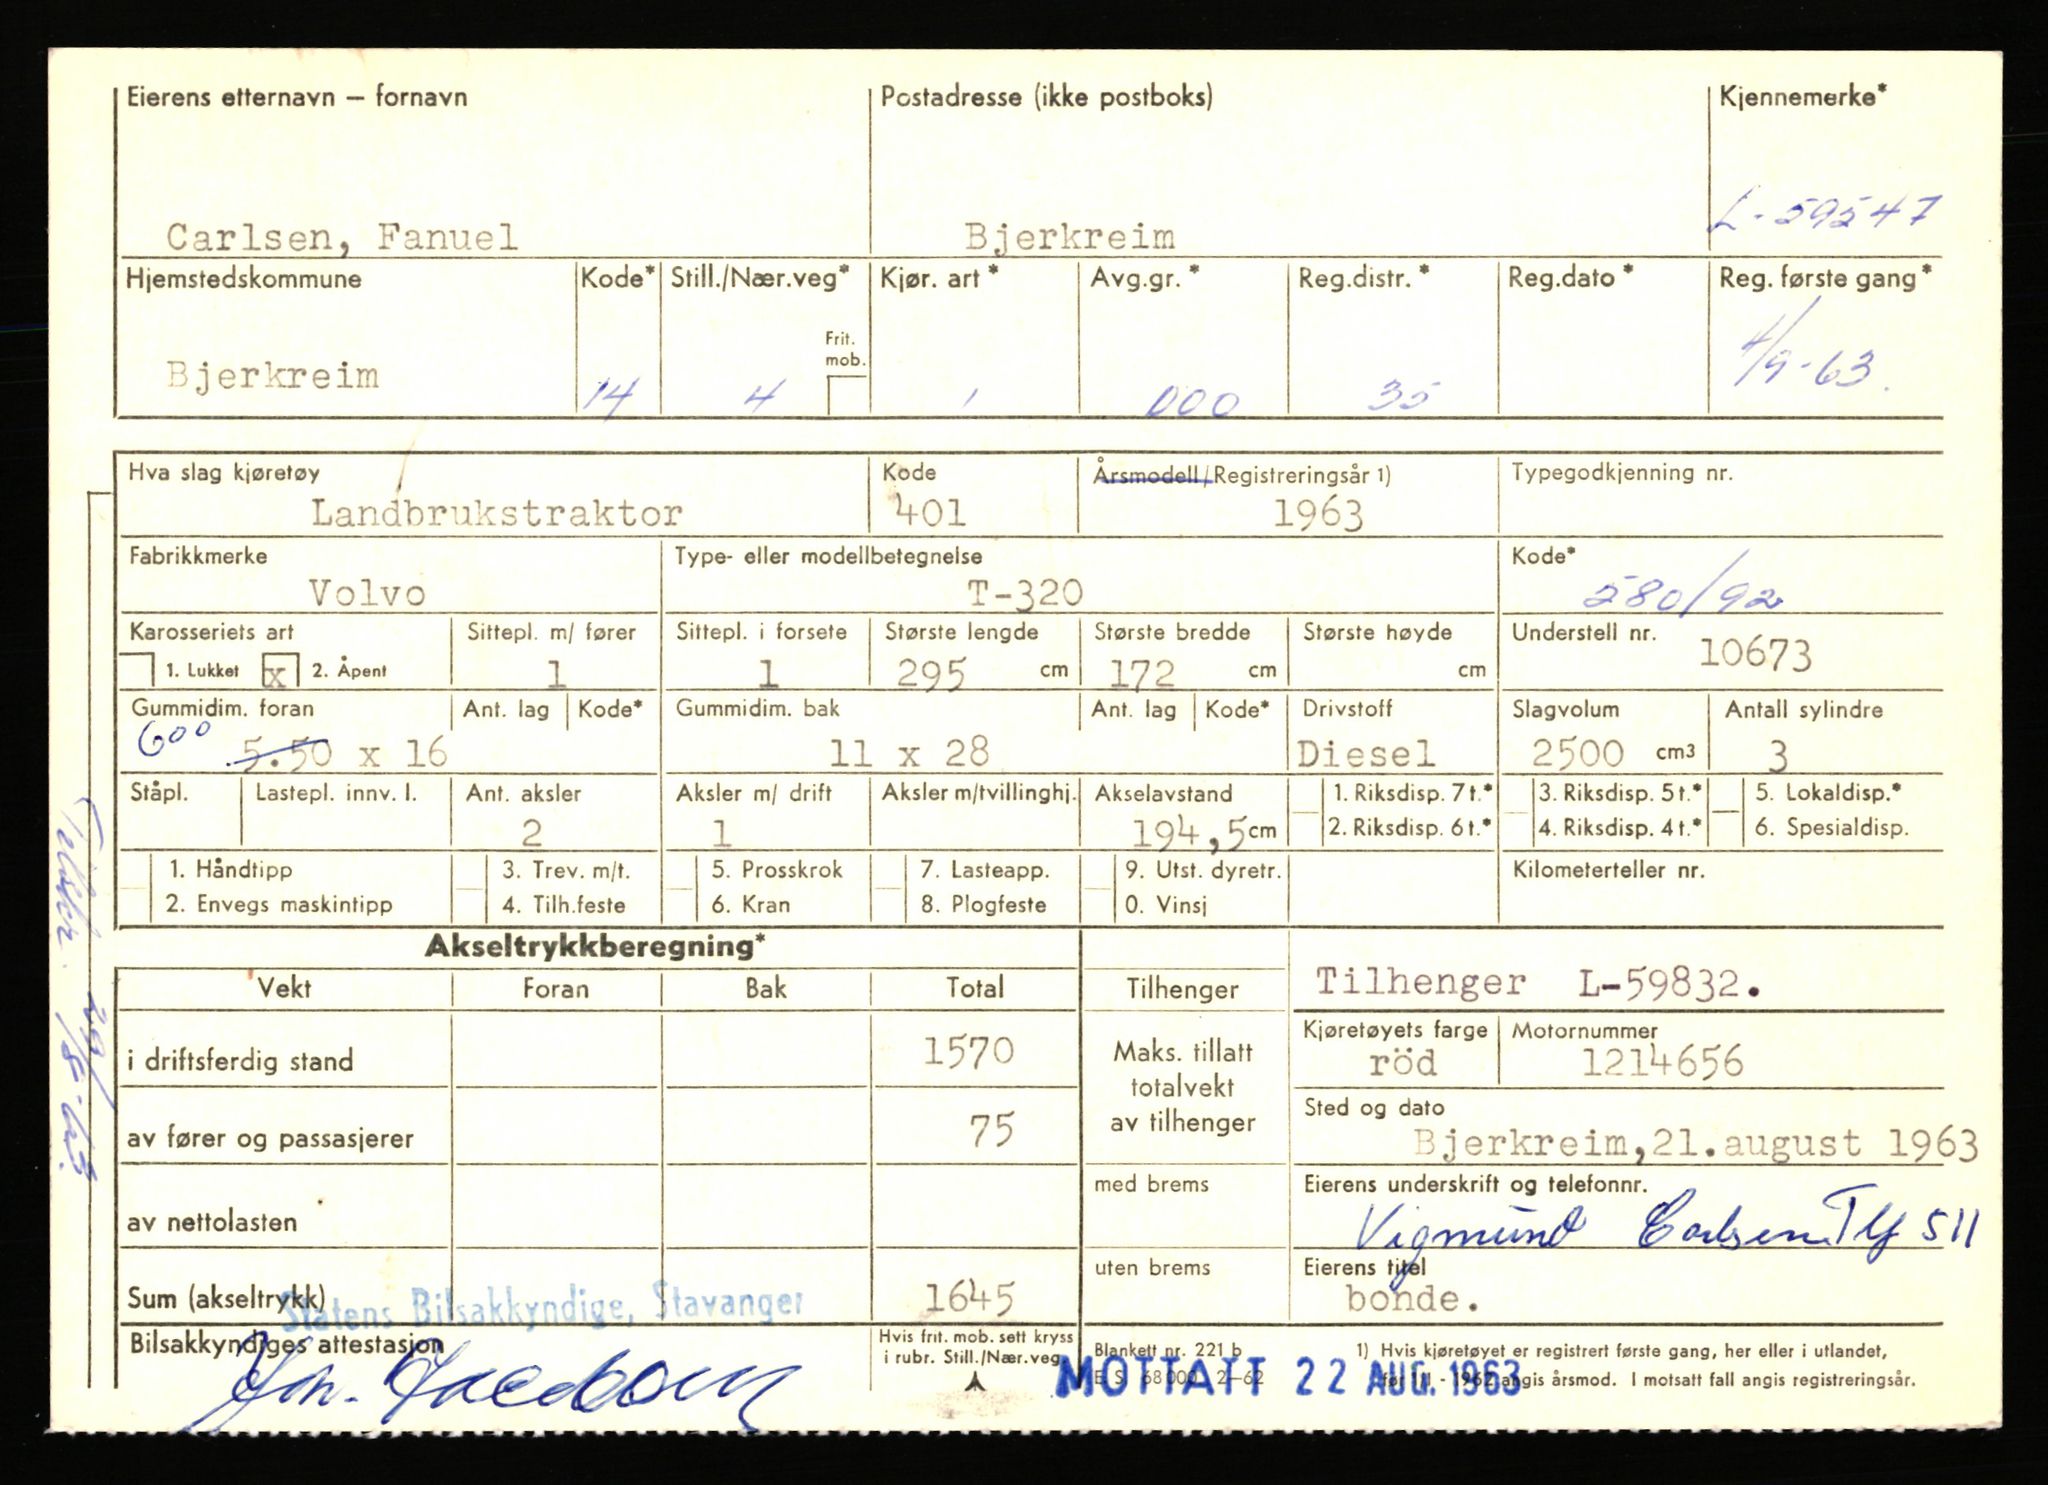 Eierens etternavn – fornavn Postadresse (ikke postboks) Kjennemerke*
L-59547
Carlsen, Fanuel Bjerkreim
Hjemstedskommune Kode* Still./Nær.veg* Kjør. art* Avg.gr.* Reg.distr.* Reg.dato* Reg. første gang*
Frit.
mob.
4/9-63
Bjerkreim 14 4 1 000 35
Hva slag kjøretøy Kode Årsmodell/Registreringsår 1) Typegodkjenning nr.
Landbrukstraktor 401 1963
Fabrikkmerke Type- eller modellbetegnelse Kode*
Volvo T-320 580/92
Karosseriets art Sittepl. m/ fører Sittepl. i forsete Største lengde Største bredde Største høyde Understell nr.
1. Lukket x 2. Åpent 1 1 295 cm 172 cm cm 10673
Gummidim. foran Ant. lag Kode* Gummidim. bak Ant. lag Kode* Drivstoff Slagvolum Antall sylindre
600
5.50 x 16 11 x 28 Diesel 2500 cm3 3
Ståpl. Lastepl. innv. l. Ant. aksler Aksler m/ drift Aksler m/tvillinghj. Akselavstand 1. Riksdisp. 7 t.* 3. Riksdisp. 5 t.* 5. Lokaldisp.*
2 1 194,5cm 2. Riksdisp. 6 t.* 4. Riksdisp. 4 t.* 6. Spesialdisp.
1. Håndtipp 3. Trev. m/t. 5. Prosskrok 7. Lasteapp. 9. Utst. dyretr. Kilometerteller nr.
2. Envegs maskintipp 4. Tilh.feste 6. Kran 8. Plogfeste 0. Vinsj
Akseltrykkberegning*
Vekt Foran Bak Total Tilhenger Tilhenger L-59832.
Kjøretøyets farge Motornummer
i driftsferdig stand 1570 Maks. tillatt röd 1214656
totalvekt
av tilhenger
Sted og dato
av fører og passasjerer 75 Bjerkreim,21.august 1963
med brems Eierens underskrift og telefonnr.
av nettolasten Vigmund Carlsen Tlf 511
uten brems Eierens titel
Sum (akseltrykk) 1645 bonde.
Statens Bilsakkyndige, Stavanger
Bilsakkyndiges attestasjon Hvis frit. mob. sett kryss
i rubr. Still./Nær.veg.
Blankett nr. 221 b
E. S. 68 000 2-62
1) Hvis kjøretøyet er registrert første gang, her eller i utlandet,
før 1/1 - 1962 angis årsmod. I motsatt fall angis registreringsår.
MOTTATT 22 AUG. 1963
29/8-63